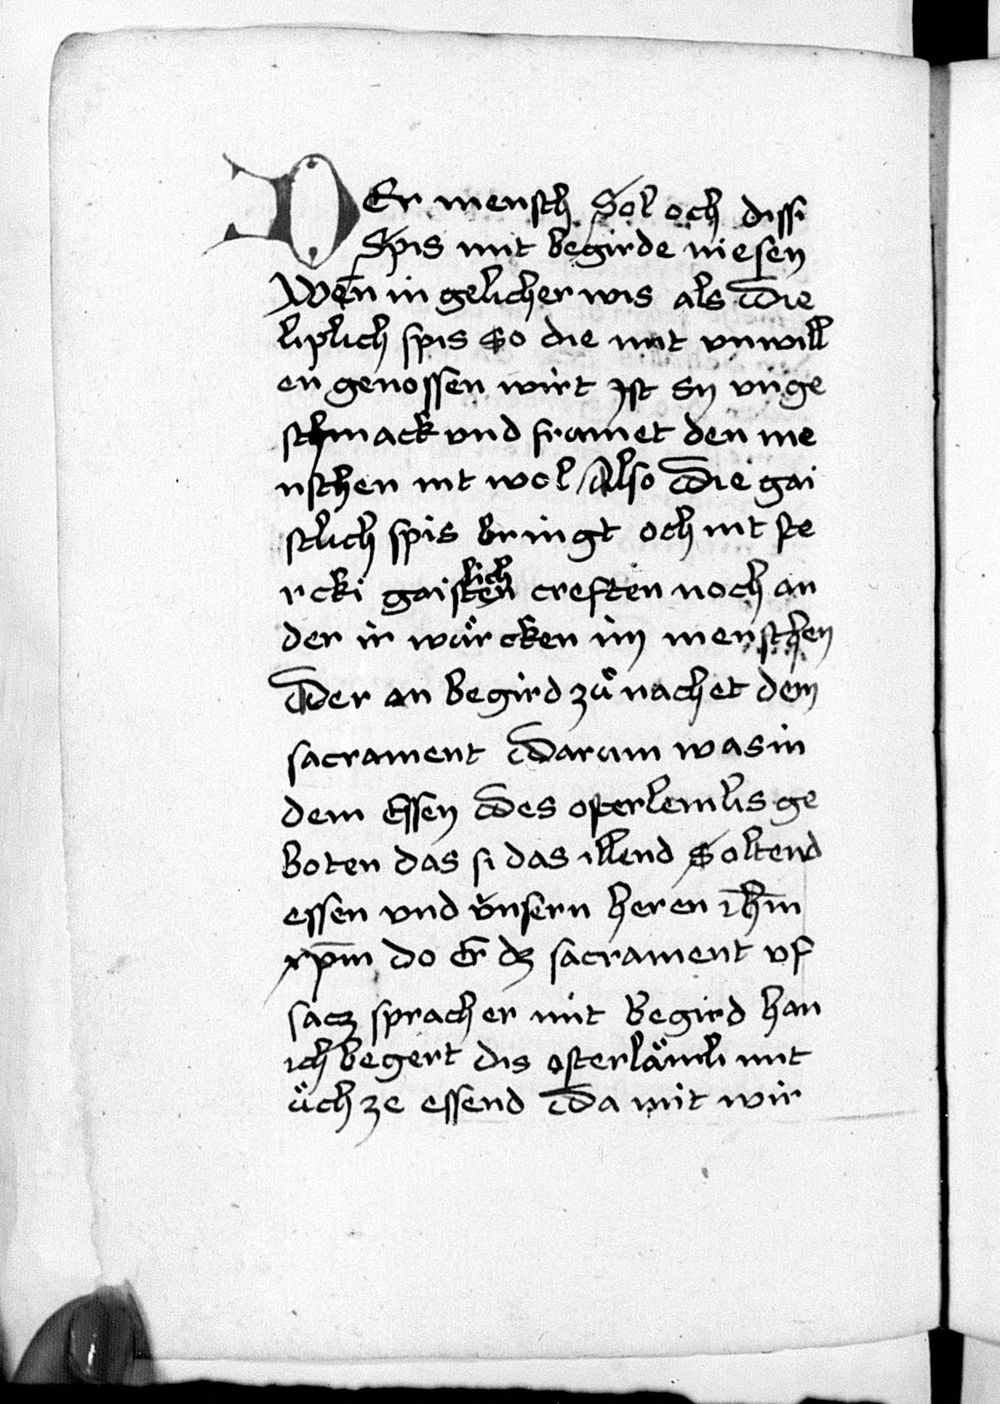 DEr mensch Sol och dissi
Spis mit begirde niesen
Wen̄ in gelicher wis als Die
liplich spis So die mit vnwill
en genossen wirt Jst Sy vnge
schmack vnd framet den me
nschen nit wol Also Die gai
stlich spis bringt och nit ste
rcki gaistlichen creften noch an
der ir wuͤrcken im menschen
Der an begird zuͦ nachet dem
sacrament Darum was in
dem Essen Des osterlemlis ge
boten das si das illend Soltend
essen vnd v̈nsern heren ih̅m
xp̅m do Er dz sacrament vf
sacz sprach er mit begird han
ich begert dis osterlaͤmli mit
uͤch ze essend Da mit wir